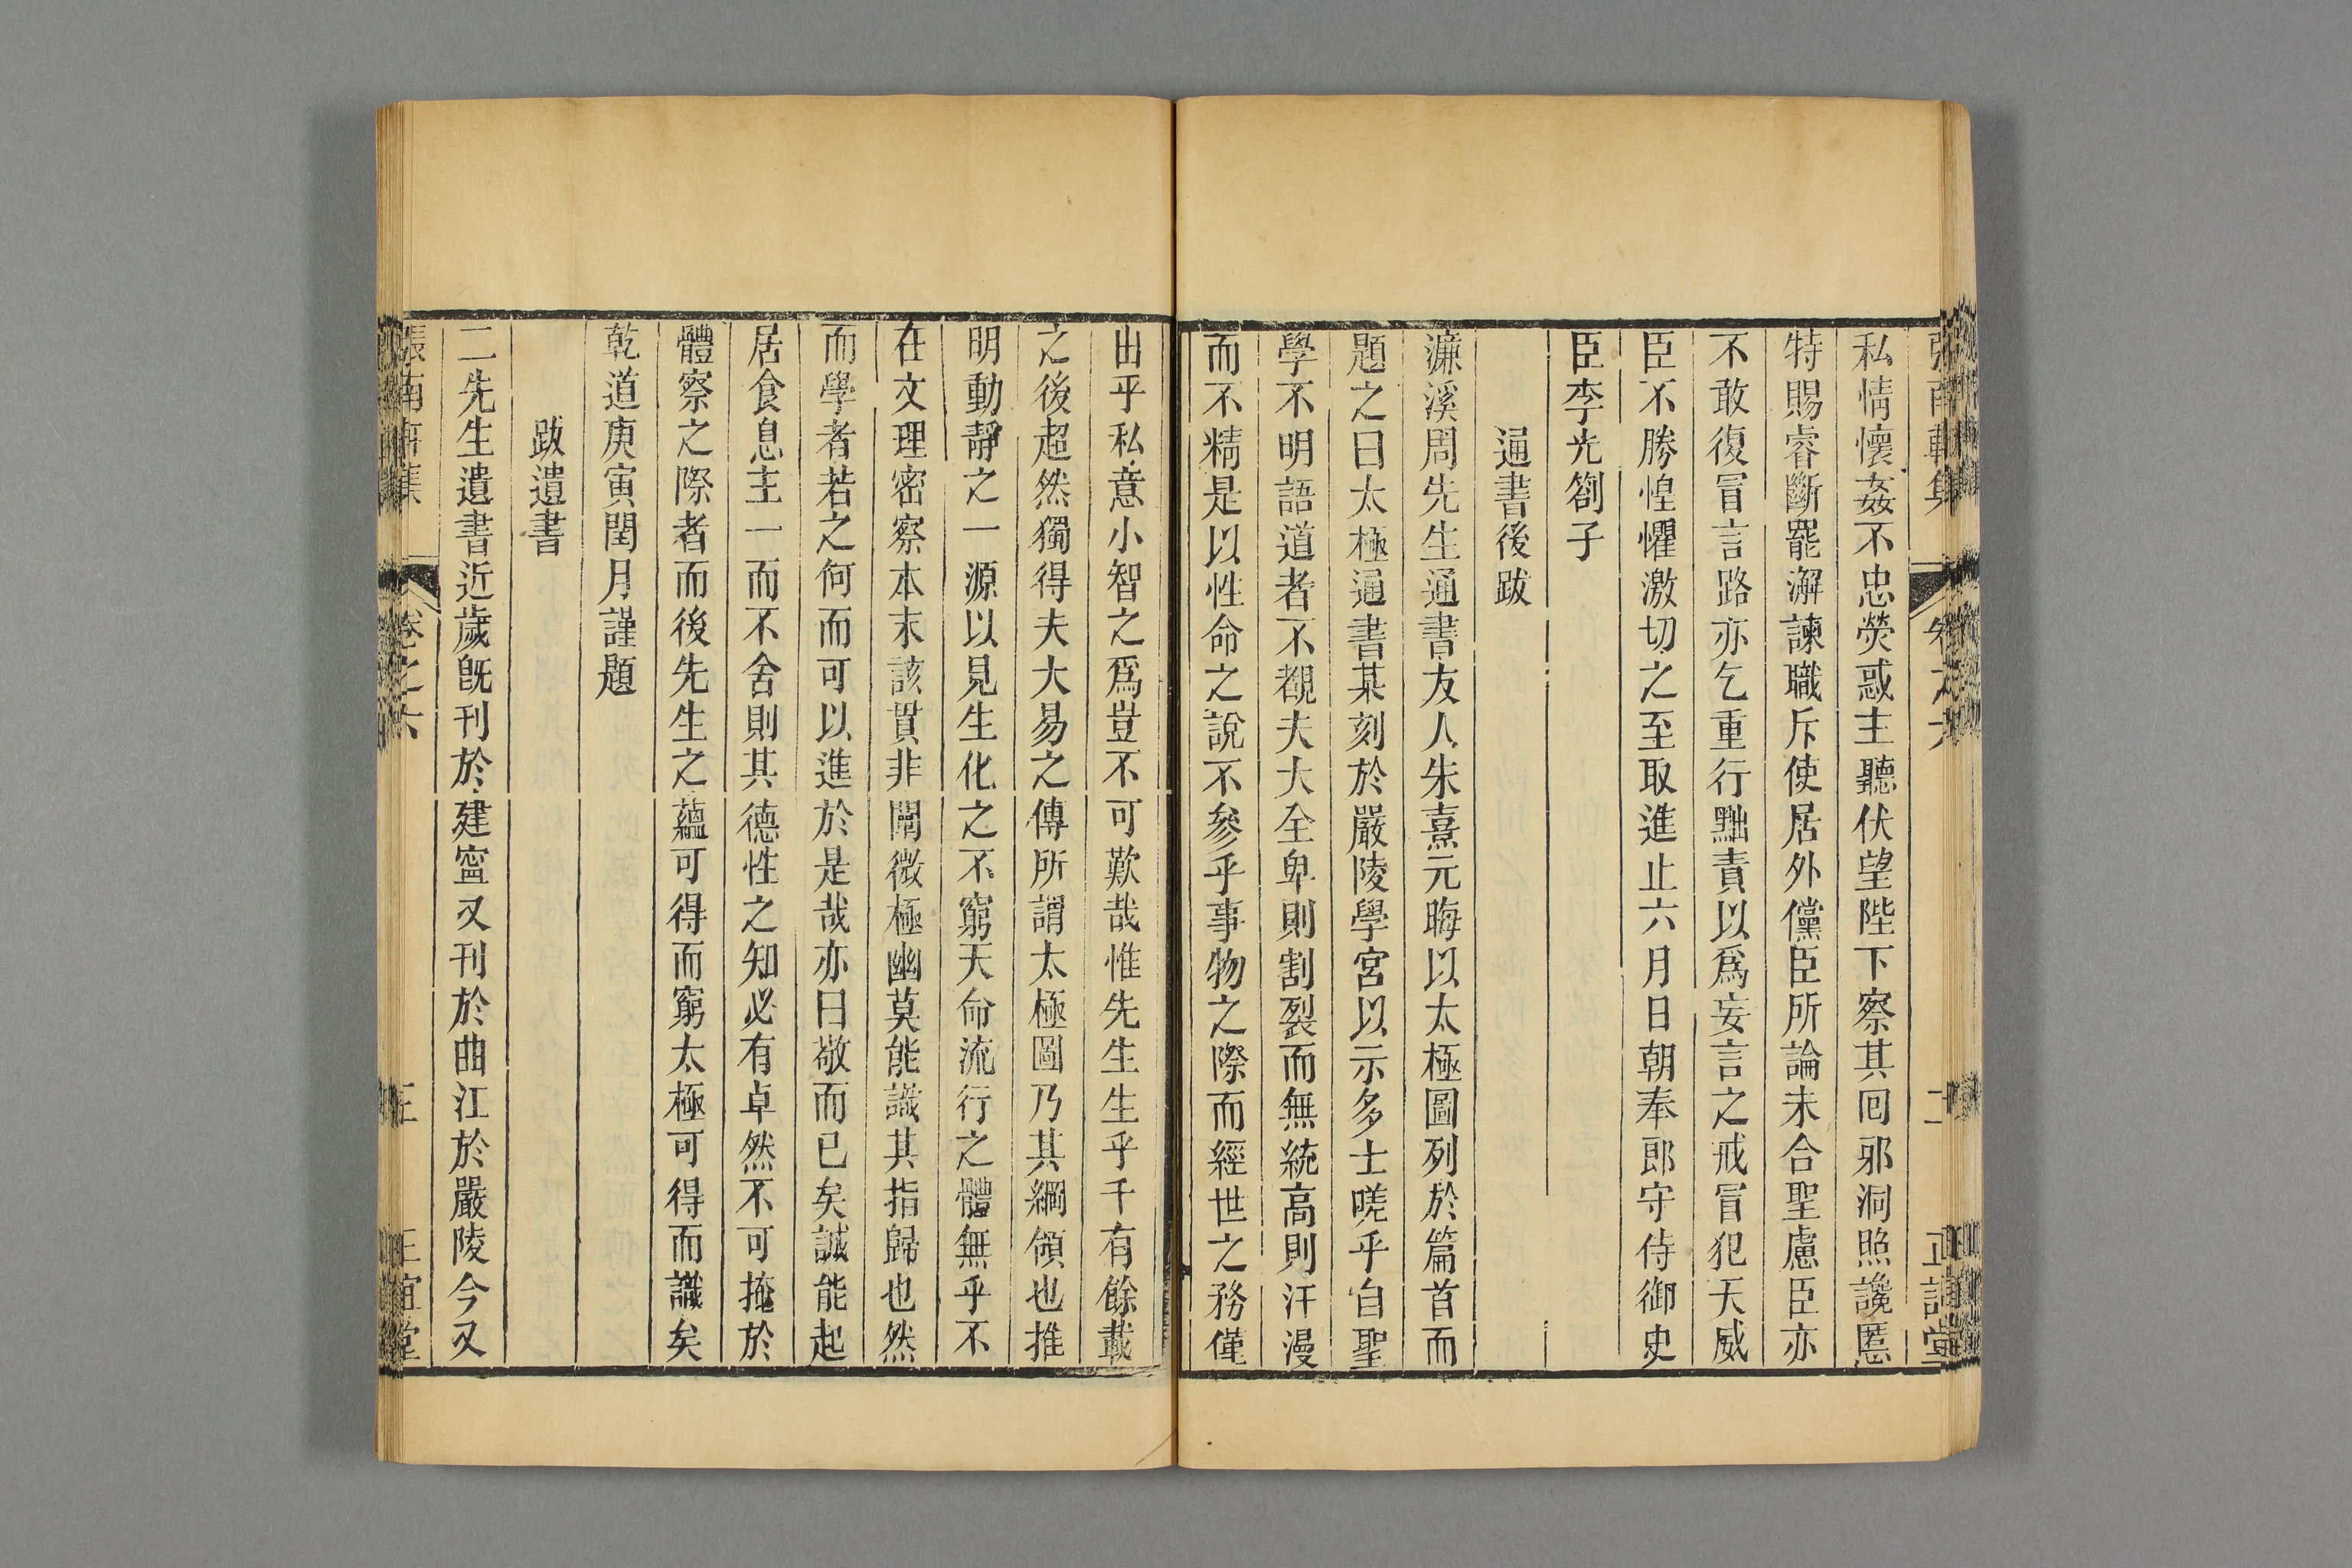 私情懷姦不忠熒惑主聽伏望陛下察其囘邪洞照讒慝
特賜睿斷罷澥諫職斥使居外儻臣所論未合聖慮臣亦
不敢復冒言路亦乞重行黜責以爲妄言之戒冒犯天威
臣不勝惶懼激切之至取進止六月日朝奉郎守侍御史
臣李光劄子
通書後跋
濂溪周先生通書友人朱熹元晦以太極圖列於篇首而
題之曰太極通書某刻於嚴陵學宮以示多士嗟乎自聖
學不明語道者不覩夫大全卑則割裂而無統高則汗漫
而不精是以性命之說不參乎事物之際而經世之務僅
出乎私意小智之爲豈不可歎哉惟先生生乎千有餘載
之後超然獨得夫大易之傳所謂太極圖乃其綱領也推
明動靜之一源以見生化之不窮天命流行之體無乎不
在文理密察本末該貫非闡微極幽莫能識其指歸也然
而學者若之何而可以進於是哉亦曰敬而已矣誠能起
居食息主一而不舍則其德性之知必有卓然不可掩於
體察之際者而後先生之蘊可得而窮太極可得而識矣
乾道庚寅閏月謹題
跋遺書
二先生遺書近歲旣刊於建寧又刊於曲江於嚴陵今又
張南軒集 卷之六 正誼堂